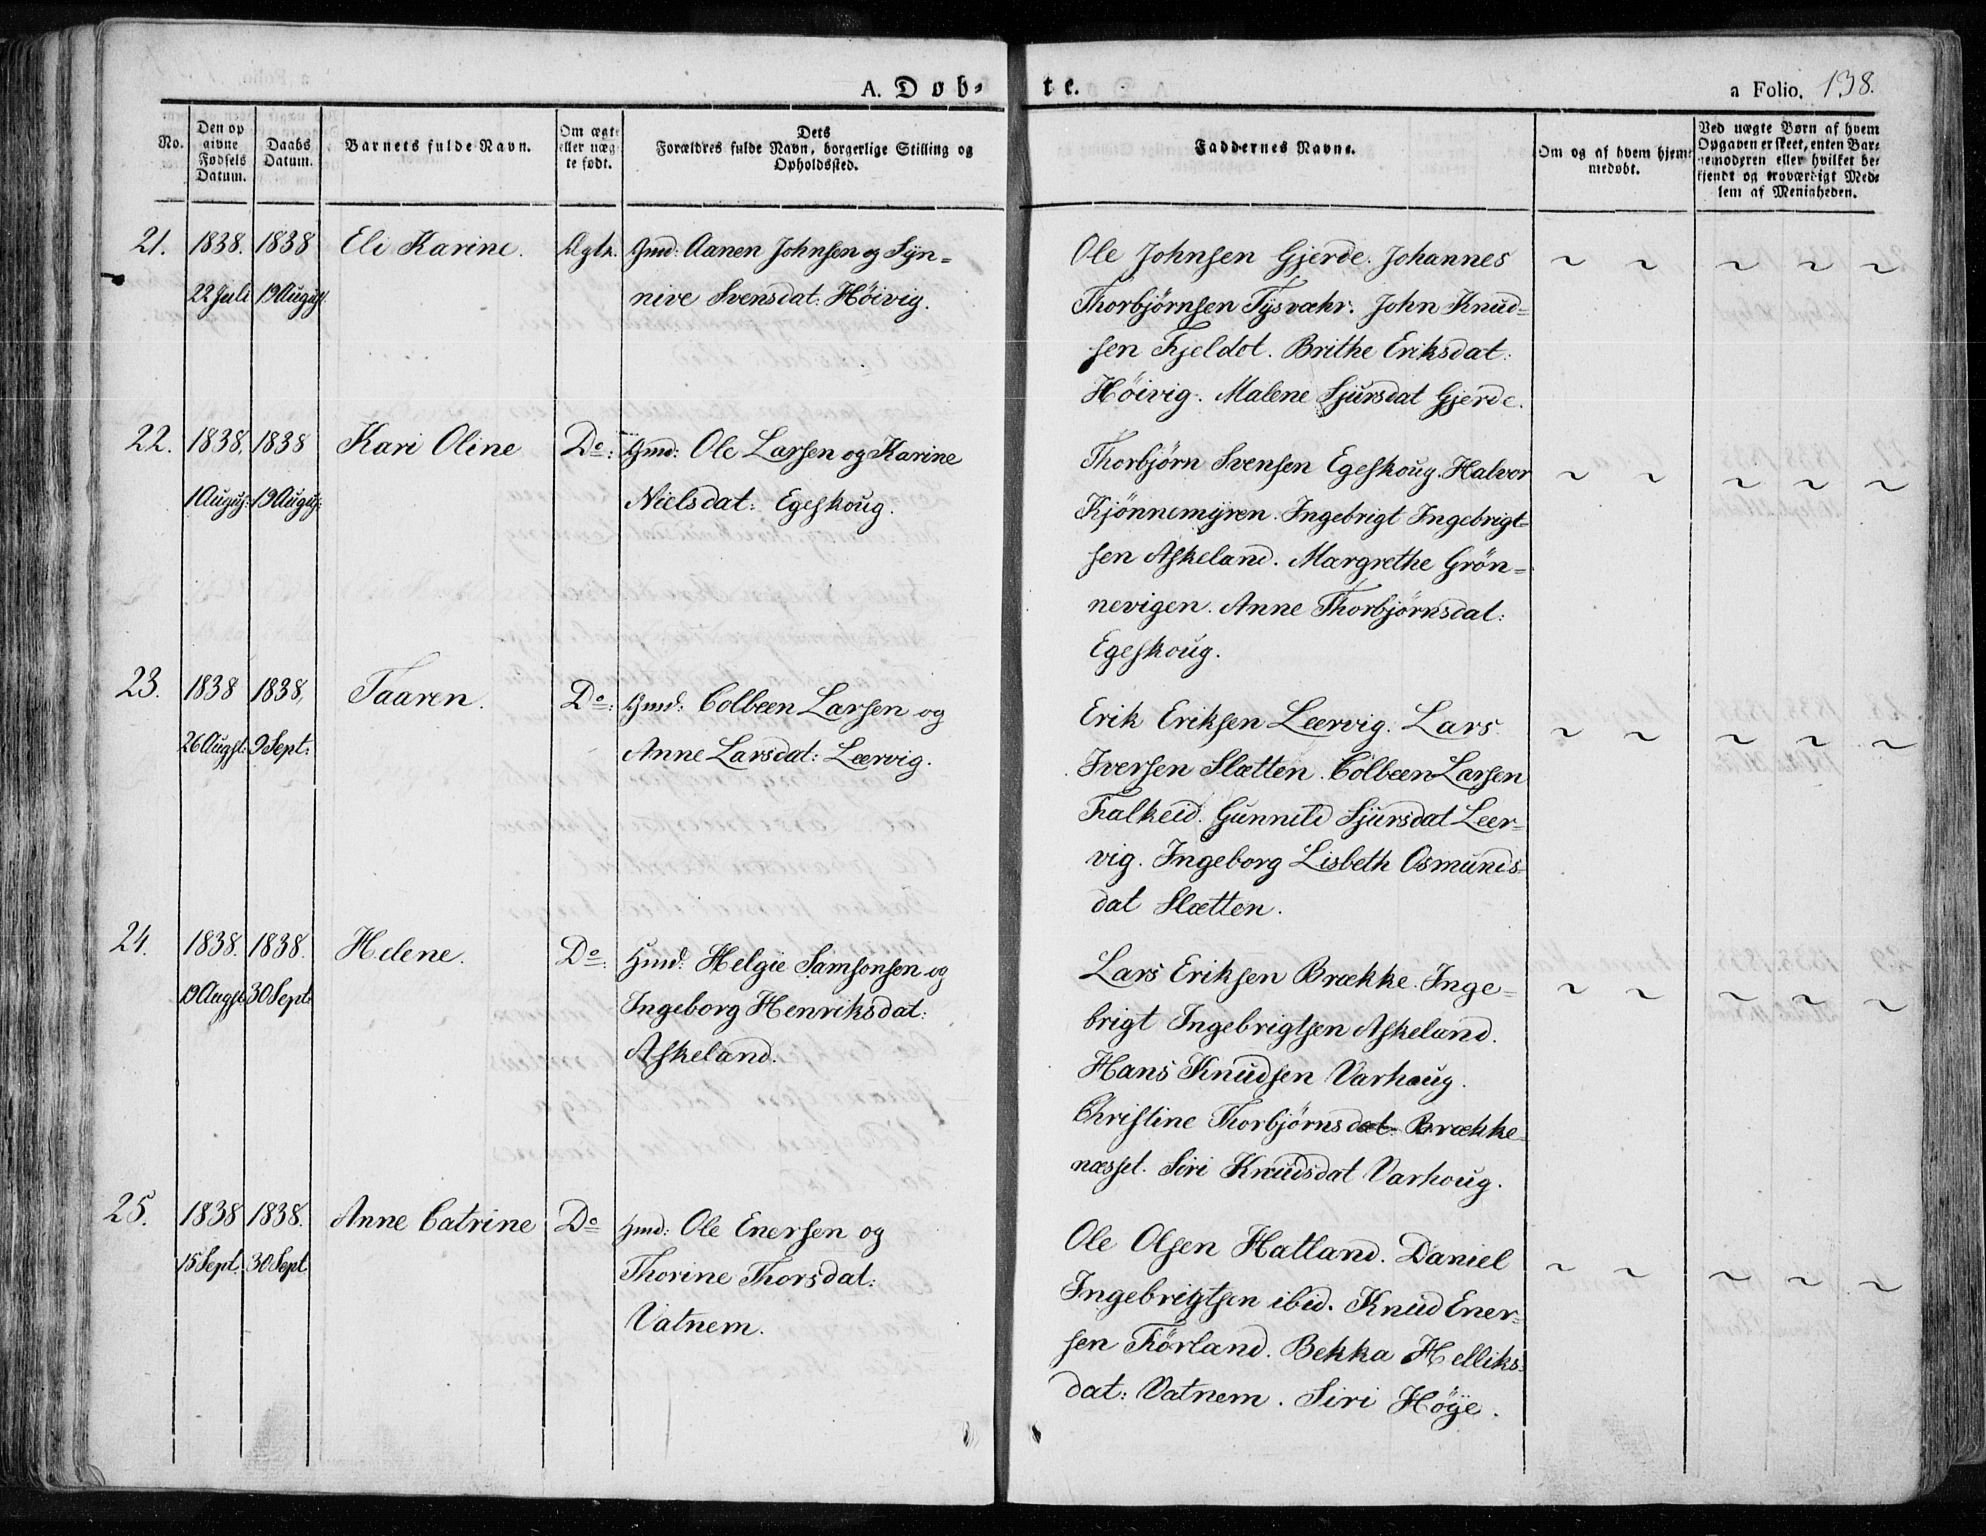 A. Døb-
te.
a Folio. 138.
No.
Den op
givne
Fødsels
Datum.
Daabs
Datum.
Barnets fulde Navn.
Om ægte
eller uæg
te født.
Dets
Forældres fulde Navn, borgerlige Stilling og
Opholdssted.
Faddernes Navne.
Om og af hvem hjem-
medøbt.
Ved uægte Børn af hvem
Opgaven er skeet, enten Bar-
nemoderen eller hvilket be-
kjendt og troværdigt Med-
lem af Menigheden.
21. 1838. 1838 Eli Karine. Ægte. Gmd: Aanen Johnsen og Syn=
22 Juli 19 August nive Svensdat: Höivig.
Ole Johnsen Gjerde. Johannes
Thorbjörnsen Tysvæhr. John Knud=
sen Fjeldot. Brithe Eriksdat:
Höivig. Malene Sjursdat Gjerde.
22. 1838. 1838 Kari Oline Do: Gmd: Ole Larsen og Karine
1 August: 19 August: Nielsdat: Egeskoug.
Thorbjörn Svensen Egeskoug. Halvor
Kjönnemyren. Ingebrigt Ingebrigt=
sen Askeland. Margrethe Grön=
nevigen. Anne Thorbjörnsdat:
Egeskoug.
23. 1838 1838. Taaren. Do: Gmd: Colbeen Larsen og
26 Augst: 9 Sept: Anne Larsdat: Leervig.
Erik Eriksen Leervig. Lars
Iversen Slætten. Colbeen Larsen
Falkeid. Gunnild Sjursdat Leer=
vig. Ingeborg Lisbeth Osmunds=
dat Slætten.
24. 1838. 1838. Helene. Do: Gmd: Helgie Samsonsen og
19 Augst. 30 Sept: Ingeborg Henriksdat:
Askeland.
Lars Eriksen Brække. Inge=
brigt Ingebrigtsen Askeland.
Hans Knudsen Varhaug.
Christine Thorbjørnsdat: Brække=
næsset. Siri Knudsdat Varhoug.
25. 1838 1838. Anne Catrine Do Gmd: Ole Enersen og
15 Sept. 30 Sept. Thorine Thorsdat:
Vatnem.
Ole Olsen Hatland. Daniel
Ingebrigtsen ibid. Knud Ener=
sen Førland. Bekka Helliks=
dat: Vatnem. Siri Höye.